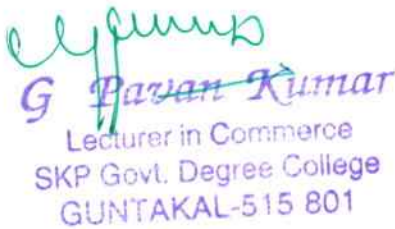 G Pavan Kumar
Lecturer in Commerce
SKP Govt. Degree College
GUNTAKAL-515 801